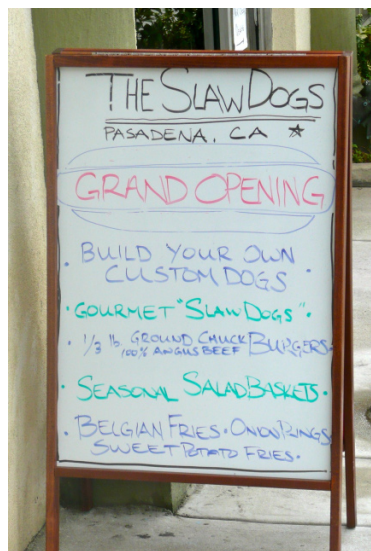 THE SLAW DOGS
PASADENA, CA ☆
GRAND OPENING
• BUILD YOUR OWN
CUSTOM DOGS •
• GOURMET "SLAW DOGS" •
• 1/3 lb. GROUND CHUCK BURGERS •
100% ANGUS BEEF
• SEASONAL SALAD BASKETS •
• BELGIAN FRIES • ONION RINGS
SWEET POTATO FRIES •